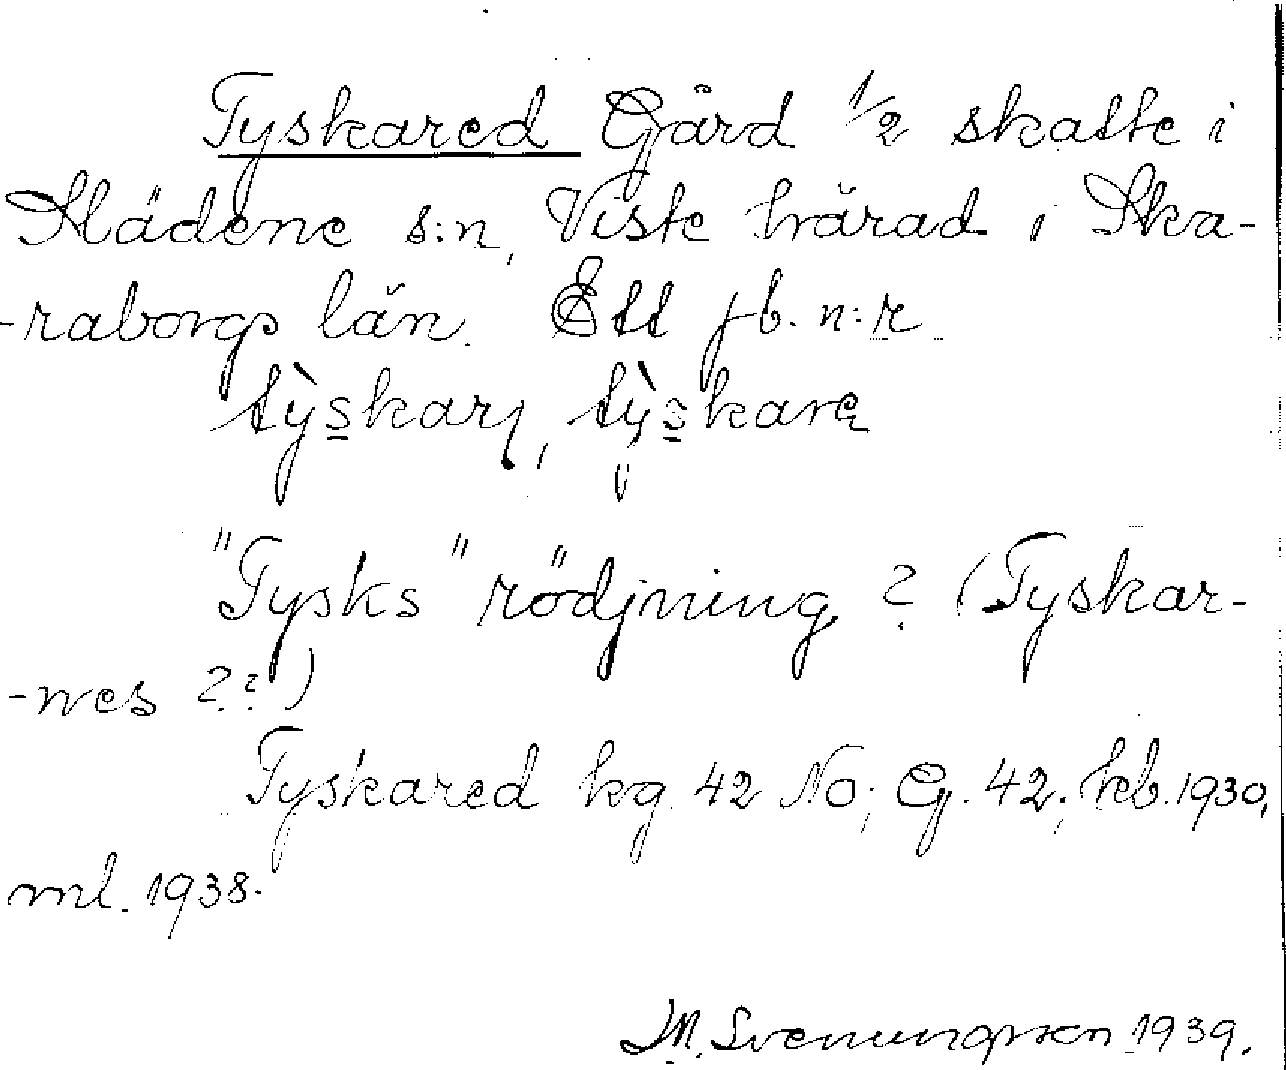 Tyskared Gård 1/2 skatte i
Slädene s:n, Viste härad i Ska-
-raborgs län. Ett jb. n:r
tỳskarı, tỳskarę
"Tysks" rödjning ? (Tyskar-
-nes ??)
Tyskared kg 42 No; G. 42; kb. 1930,
ml. 1938.
M. Svenungsson 1939.